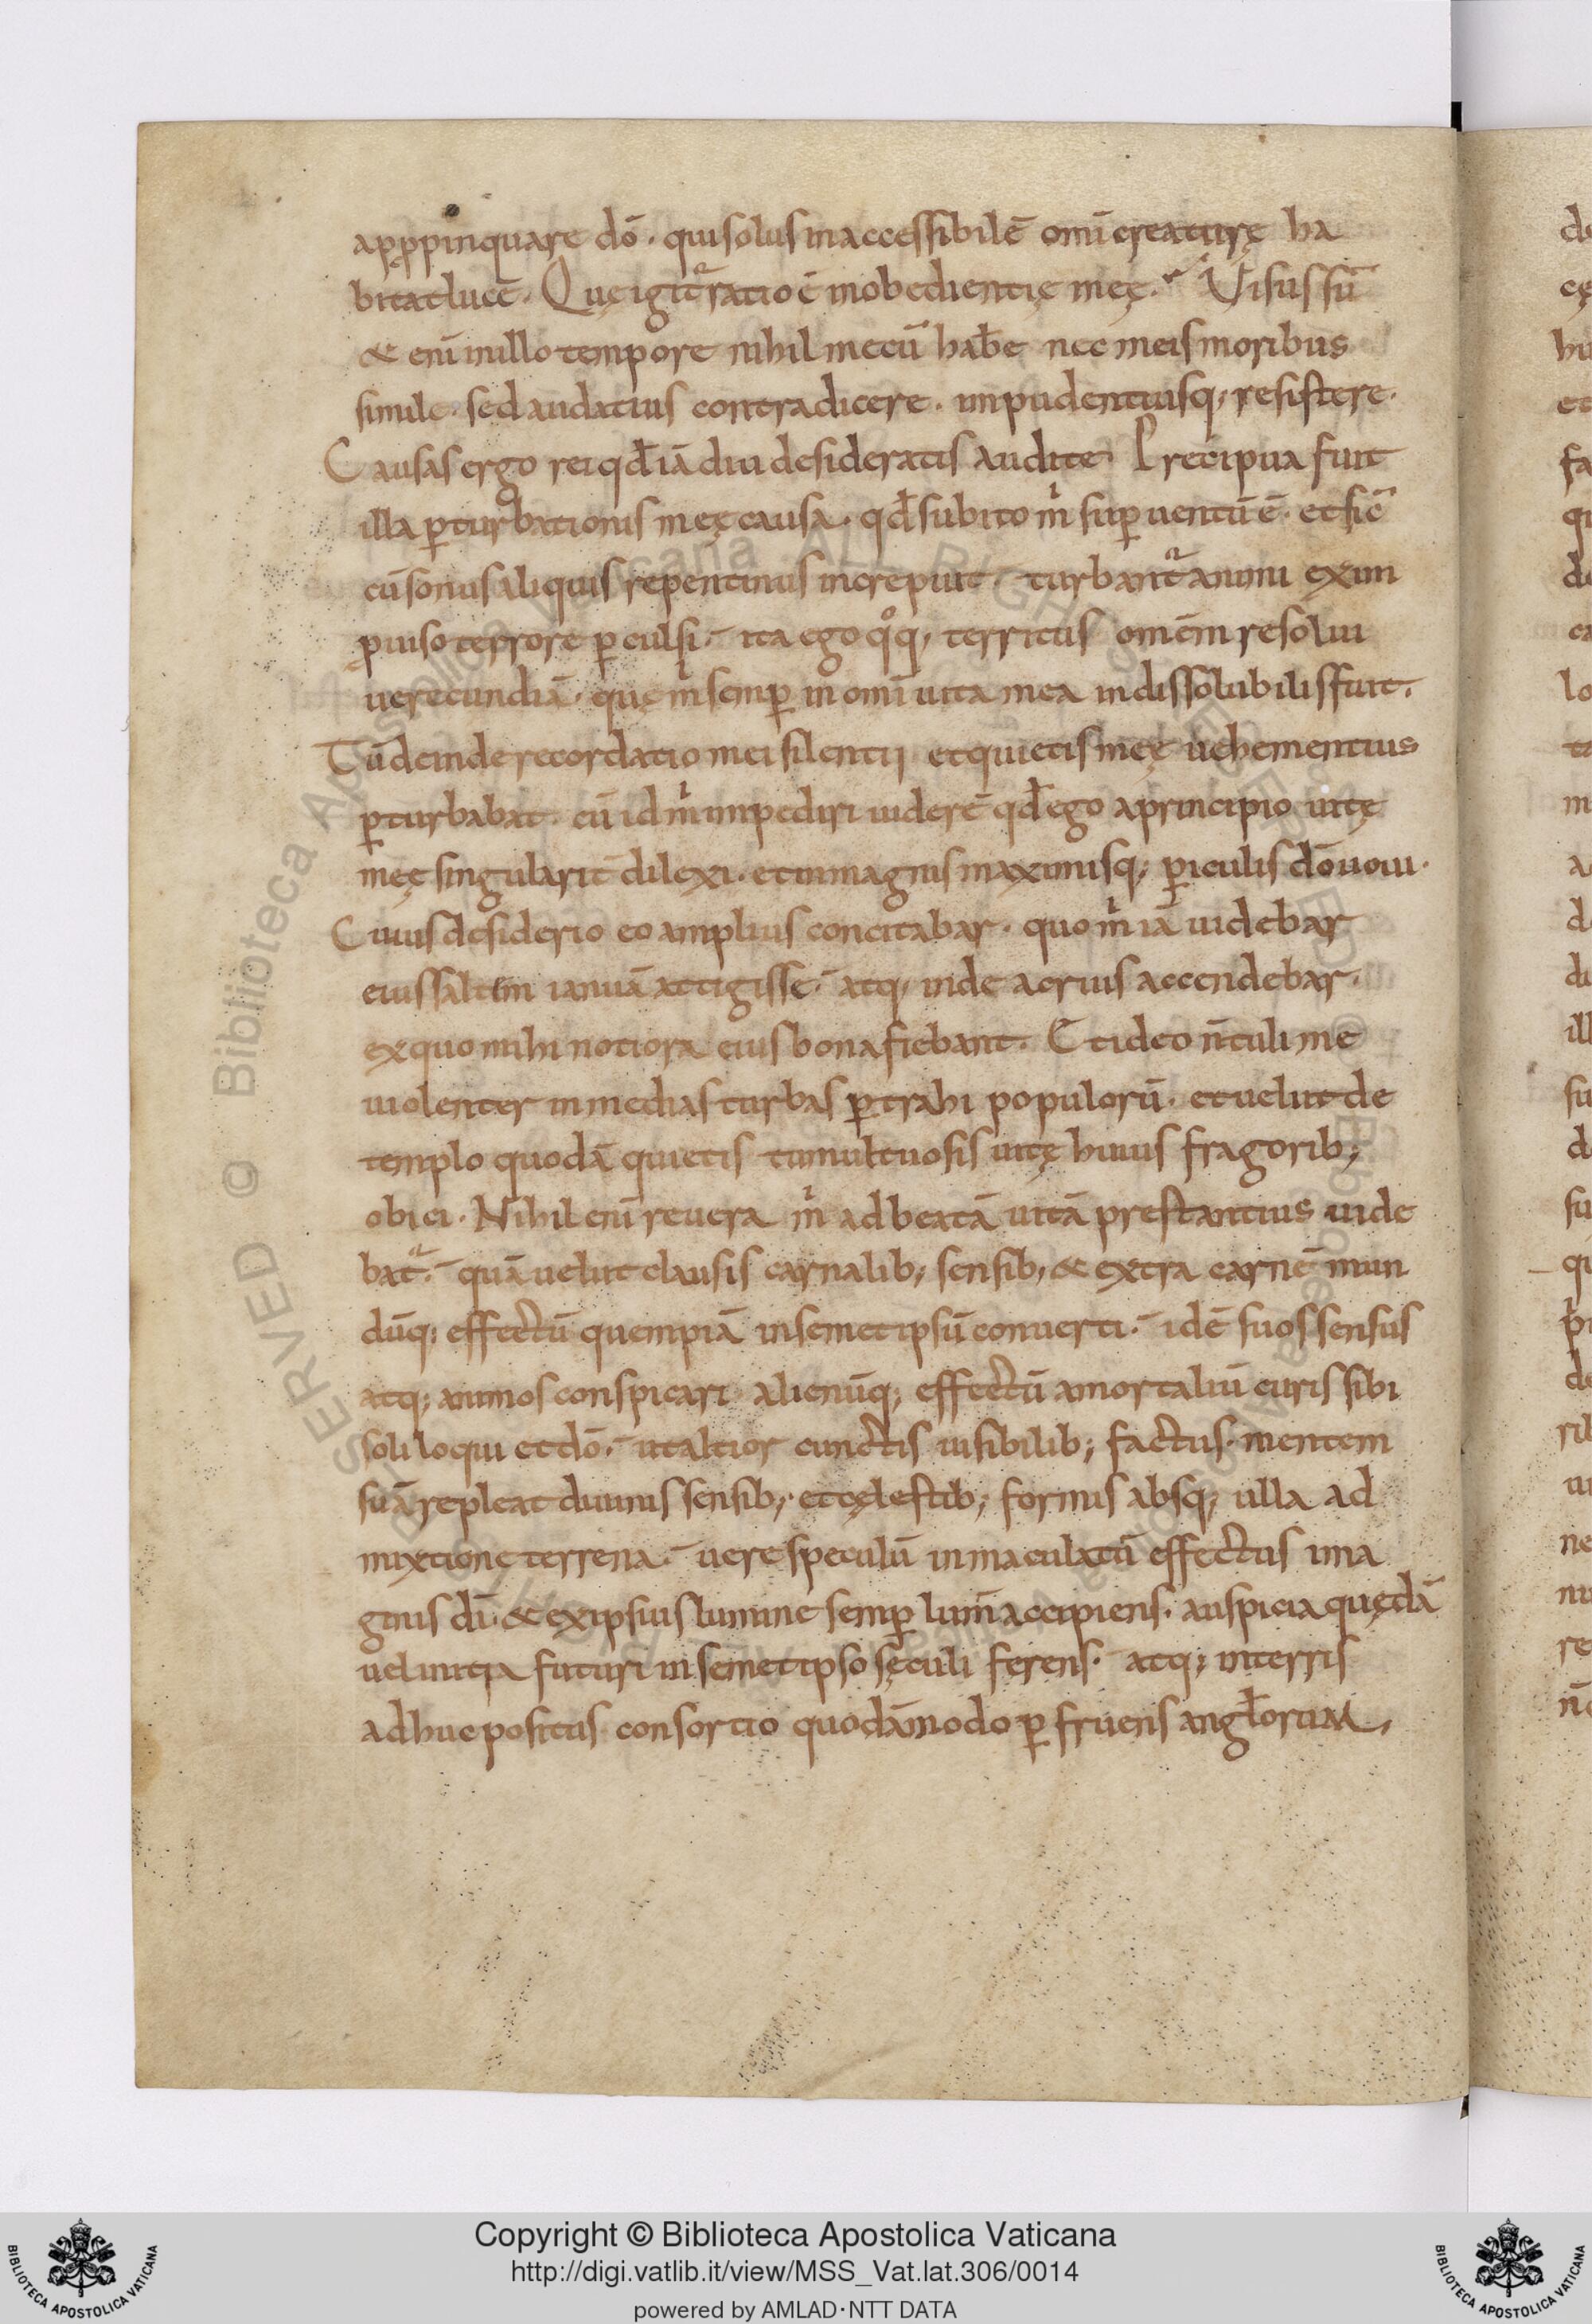 apꝓpinquare dō · qui solus inaccessibilē omī creaturę ha
bitat lucē · Quę igit̄ ratio ē inobedientię meę · Visus sū
& enī in illo tempore nihil mecū hab̄e nec meis moribus
simile · sed audatius contradicere · impudentiusq; resistere ·
Causas ergo rei qd̄ iā diu desideratis audite · Precipua fuit
illa ꝑturbationis meę causa · qd̄ subito m̄ suꝑuentū ē · et sic
cū sonus aliquis repentinus increpuit · turbant̄ animi ex im
ꝓuiso terrore ꝑculsi · ita ego qoq; territus omēm resolui
uerecundiā · quę m̄ semꝑ in omī uita mea indissolubilis fuit ·
Tū deinde recordatio mei silentii et quietis meę uehementius
ꝑturbabat · cū id m̄ impediri uiderē qd̄ ego a principio uitę
meę singularit̄ dilexi · et in magnis maximisq; ꝑiculis dō uoui ·
Cuius desiderio eo amplius concitabar · quo m̄ iā uidebar
eius saltim ianuā attigisse · atq; inde acrius accendebar ·
ex quo mihi notiora eius bona fiebant · Et ideo n̄ tuli me
uiolenter in medias turbas ꝑtrahi populorū · et uelut de
templo quodā quietis tumultuosis uitę huius fragorib;
obici · Nihil enī reuera m̄ ad beatā uitā prestantius uide
bat̄ · quā uelut clausis carnalib; sensib; & extra carnē mun
dūq; effectū quempiā in semet ipsū conuerti · idē suos sensus
atq; animos conspicari alienūq; effectū a mortaliū curis sibi
soli loqui et dō · ut altior cunctis uisibilib; factus · mentem
suā repleat diuinis sensib; et cęlestib; formis absq; ulla ad
mixtione terrena · uere speculū inmaculatū effectus ima
ginis dī · & ex ipsius lumine semꝑ lum̄ accipiens · auspicia quędā
uel initia futuri in semet ipso sęculi ferens · atq; in terris
adhuc positus consortio quodāmodo ꝑfruens angl̄orum,
Copyright © Biblioteca Apostolica Vaticana
http://digi.vatlib.it/view/MSS_Vat.lat.306/0014
powered by AMLAD·NTT DATA